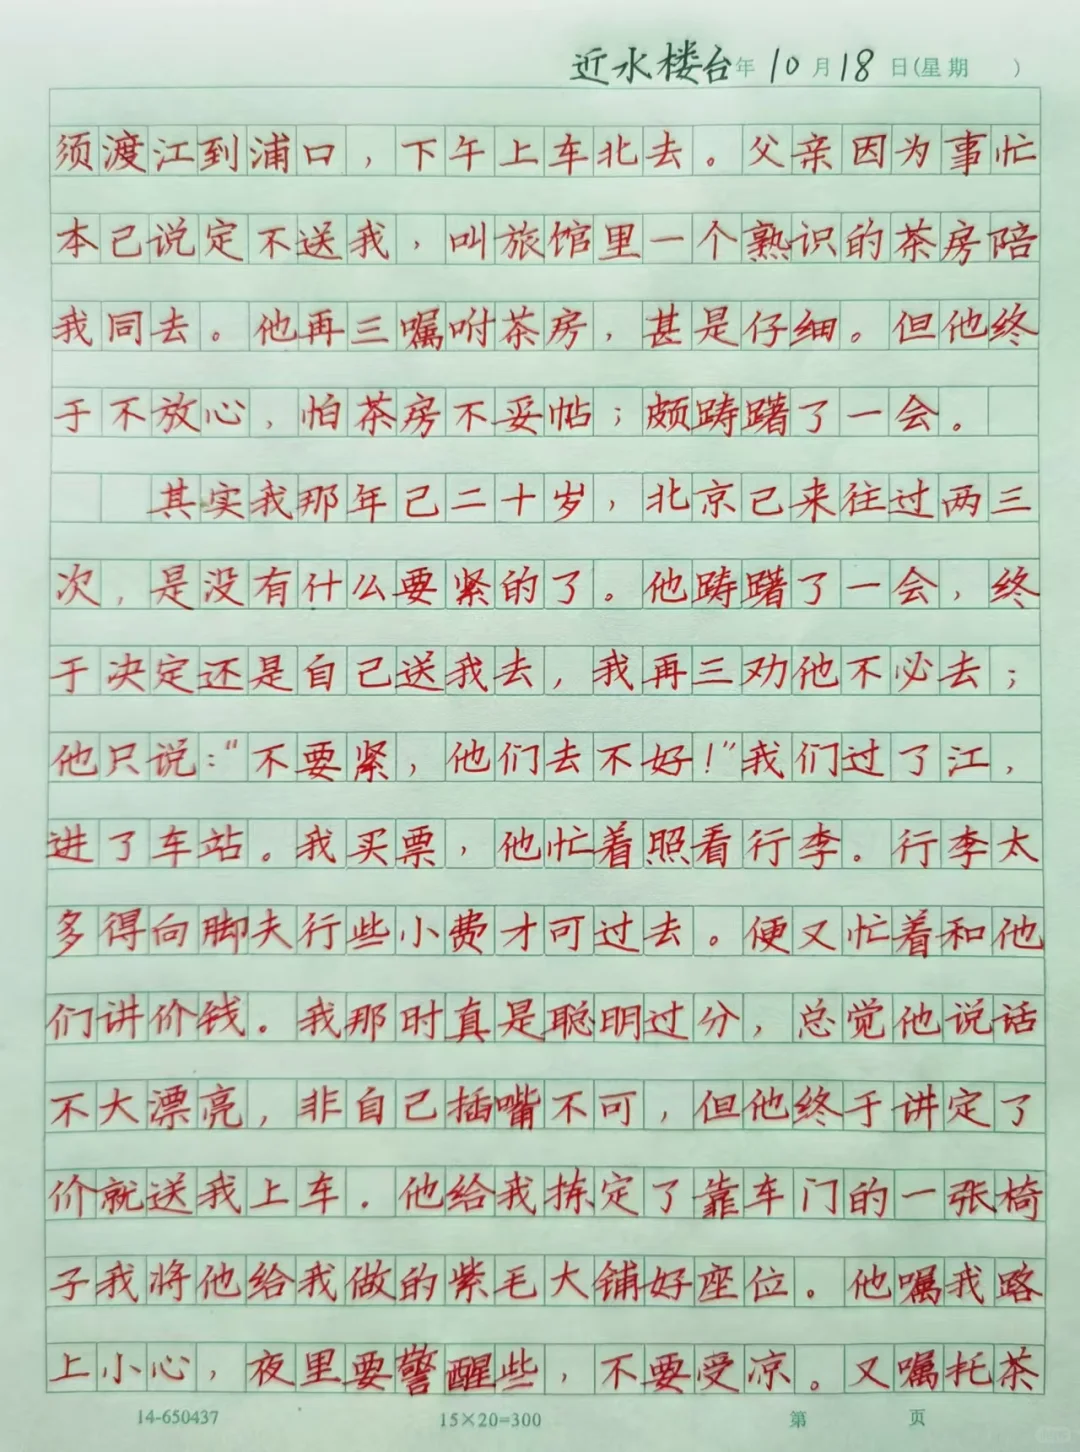 近水楼台年10月18日(星期 )
须渡江到浦口，下午上车北去。父亲因为事忙
本已说定不送我，叫旅馆里一个熟识的茶房陪
我同去。他再三嘱咐茶房，甚是仔细。但他终
于不放心，怕茶房不妥帖；颇踌躇了一会。
其实我那年已二十岁，北京已来往过两三
次，是没有什么要紧的了。他踌躇了一会，终
于决定还是自己送我去，我再三劝他不必去；
他只说：“不要紧，他们去不好！”我们过了江，
进了车站。我买票，他忙着照看行李。行李太
多得向脚夫行些小费才可过去。便又忙着和他
们讲价钱。我那时真是聪明过分，总觉他说话
不大漂亮，非自己插嘴不可，但他终于讲定了
价就送我上车．他给我拣定了靠车门的一张椅
子我将他给我做的紫毛大铺好座位。他嘱我路
上小心，夜里要警醒些，不要受凉。又嘱托茶
14-650437 15×20=300 第 页